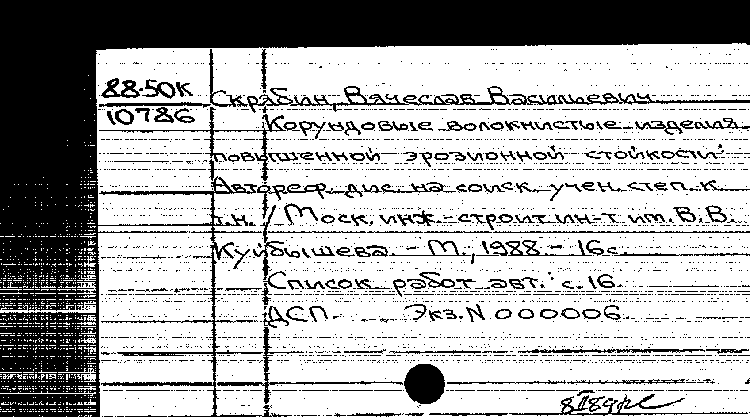 88-50К
10786
Скрябин, Вячеслав Васильевич.
Корундовые волокнистые изделия
повышенной эрозионной стойкости:
Автореф. дис. на соиск. учен. степ. к.
т.н. / Моск. инж.-строит. ин-т им. В.В.
Куйбышева. - М., 1988. - 16с.
Список работ авт.: с.16.
ДСП. Экз. N 000006.